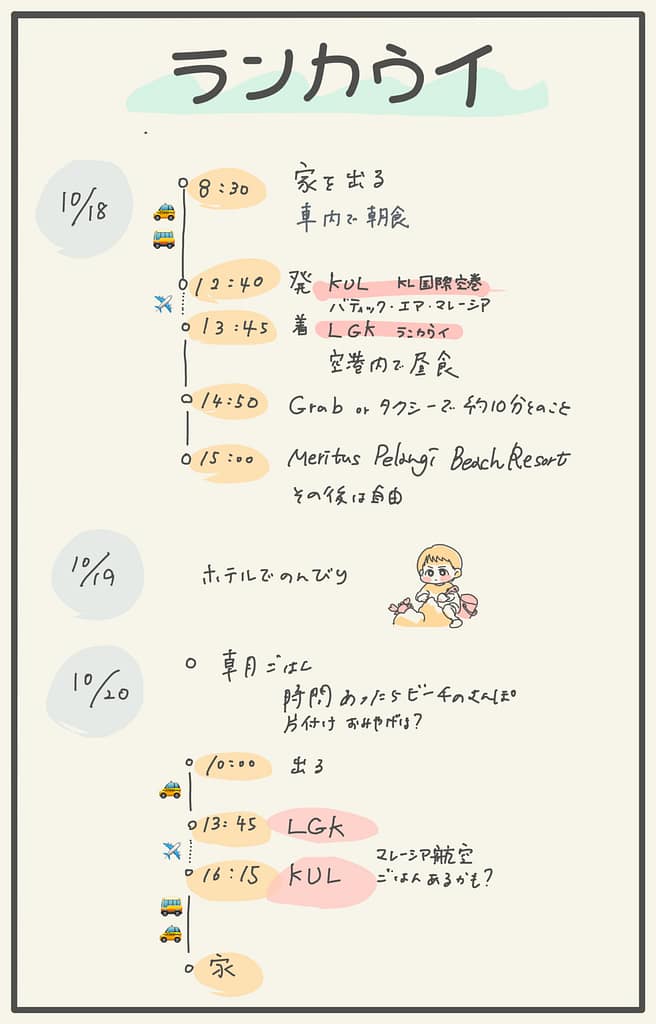 ランカウイ
10/18
8:30 家を出る
車内で朝食
12:40 発 KUL KL国際空港
バティック・エア・マレーシア
13:45 着 LGK ランカウイ
空港内で昼食
14:50 Grab or タクシーで約10分とのこと
15:00 Meritus Pelangi Beach Resort
その後は自由
10/19 ホテルでのんびり
10/20 朝ごはん
時間あったらビーチのさんぽ
片付け おみやげは?
10:00 出る
13:45 LGK
マレーシア航空
16:15 KUL ごはんあるかも?
家